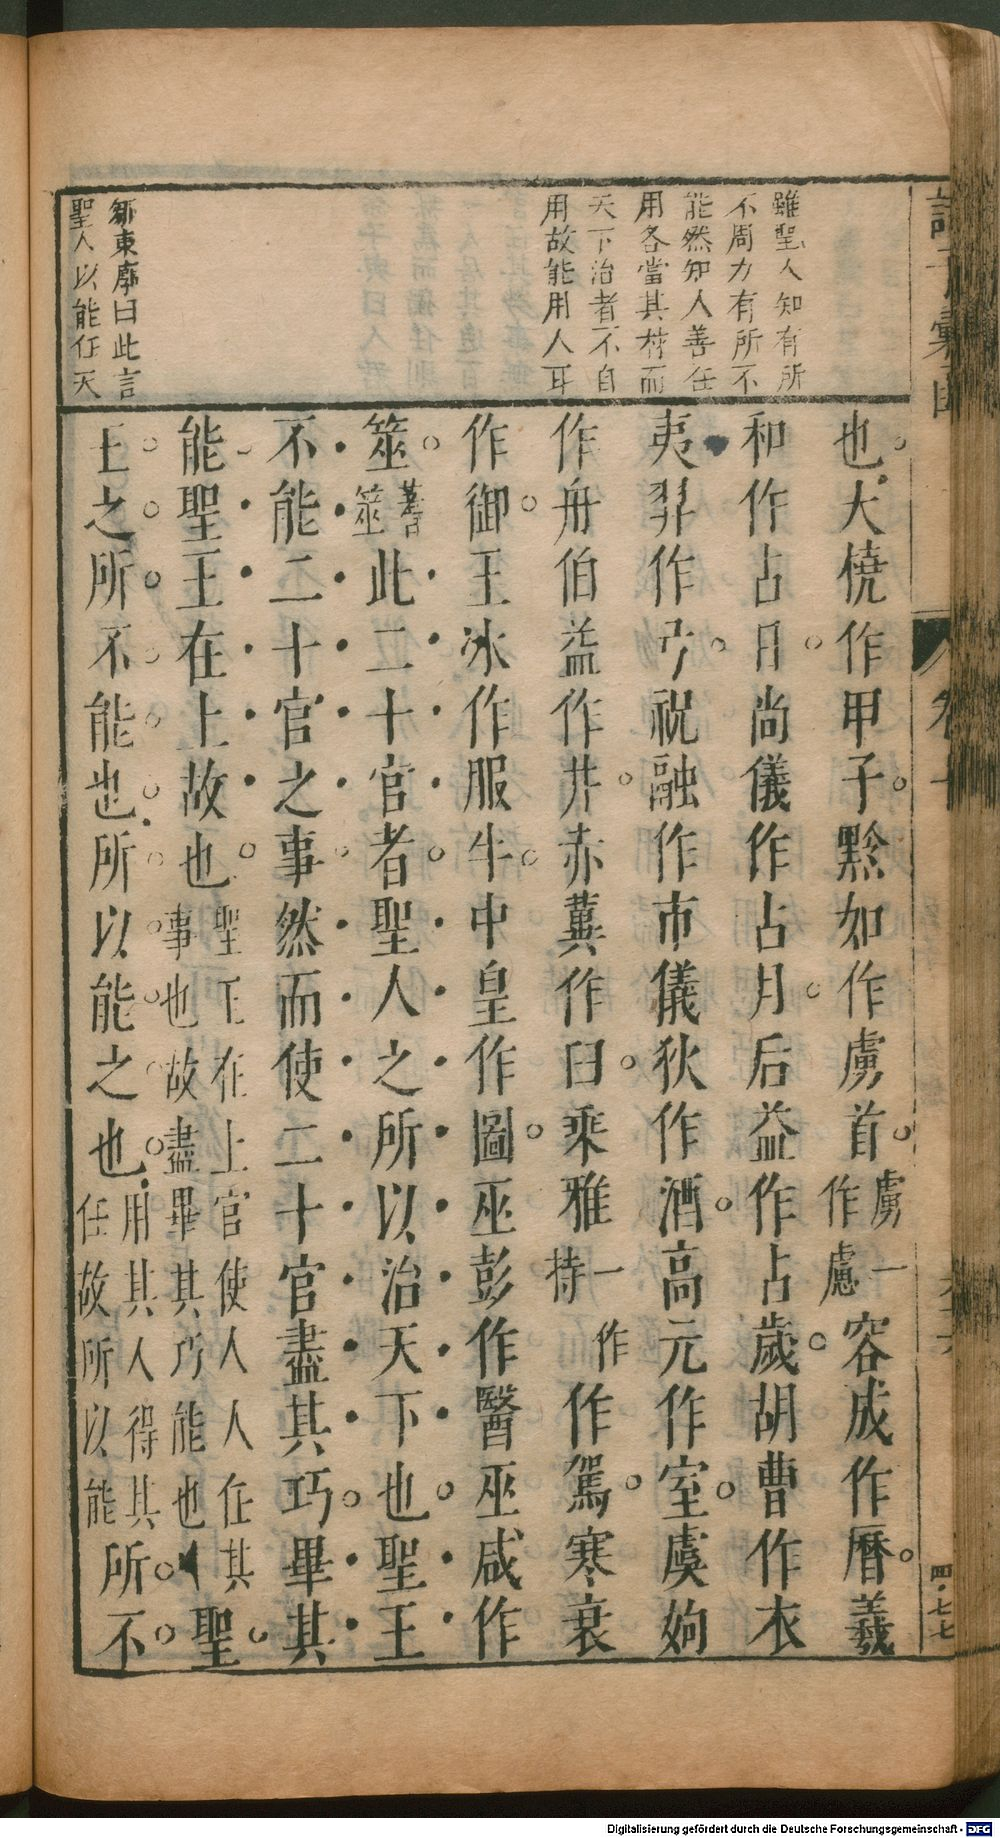 雖聖人知有所
不周力有所不
能然知人善任
用各當其材而
天下治者不自
用故能用人耳
鄒東廓曰此言
聖人以能任天
也大橈作甲子黔如作虜首虜一作慮容成作曆羲
和作占日尚儀作占月后益作占歲胡曹作衣
夷羿作弓祝融作市儀狄作酒高元作室虞姁
作舟伯益作井赤冀作臼乘雅一作持作駕寒衰
作御王冰作服牛史皇作圖巫彭作醫巫咸作
筮蓍筮此二十官者聖人之所以治天下也聖王
不能二十官之事然而使二十官盡其巧畢其
能聖王在上故也聖王在上官使人人任其事也故盡畢其巧能也聖
王之所不能也所以能之也用其人得其任故所以能所不
卷十
四·七七
Digitalisierung gefördert durch die Deutsche Forschungsgemeinschaft - DFG